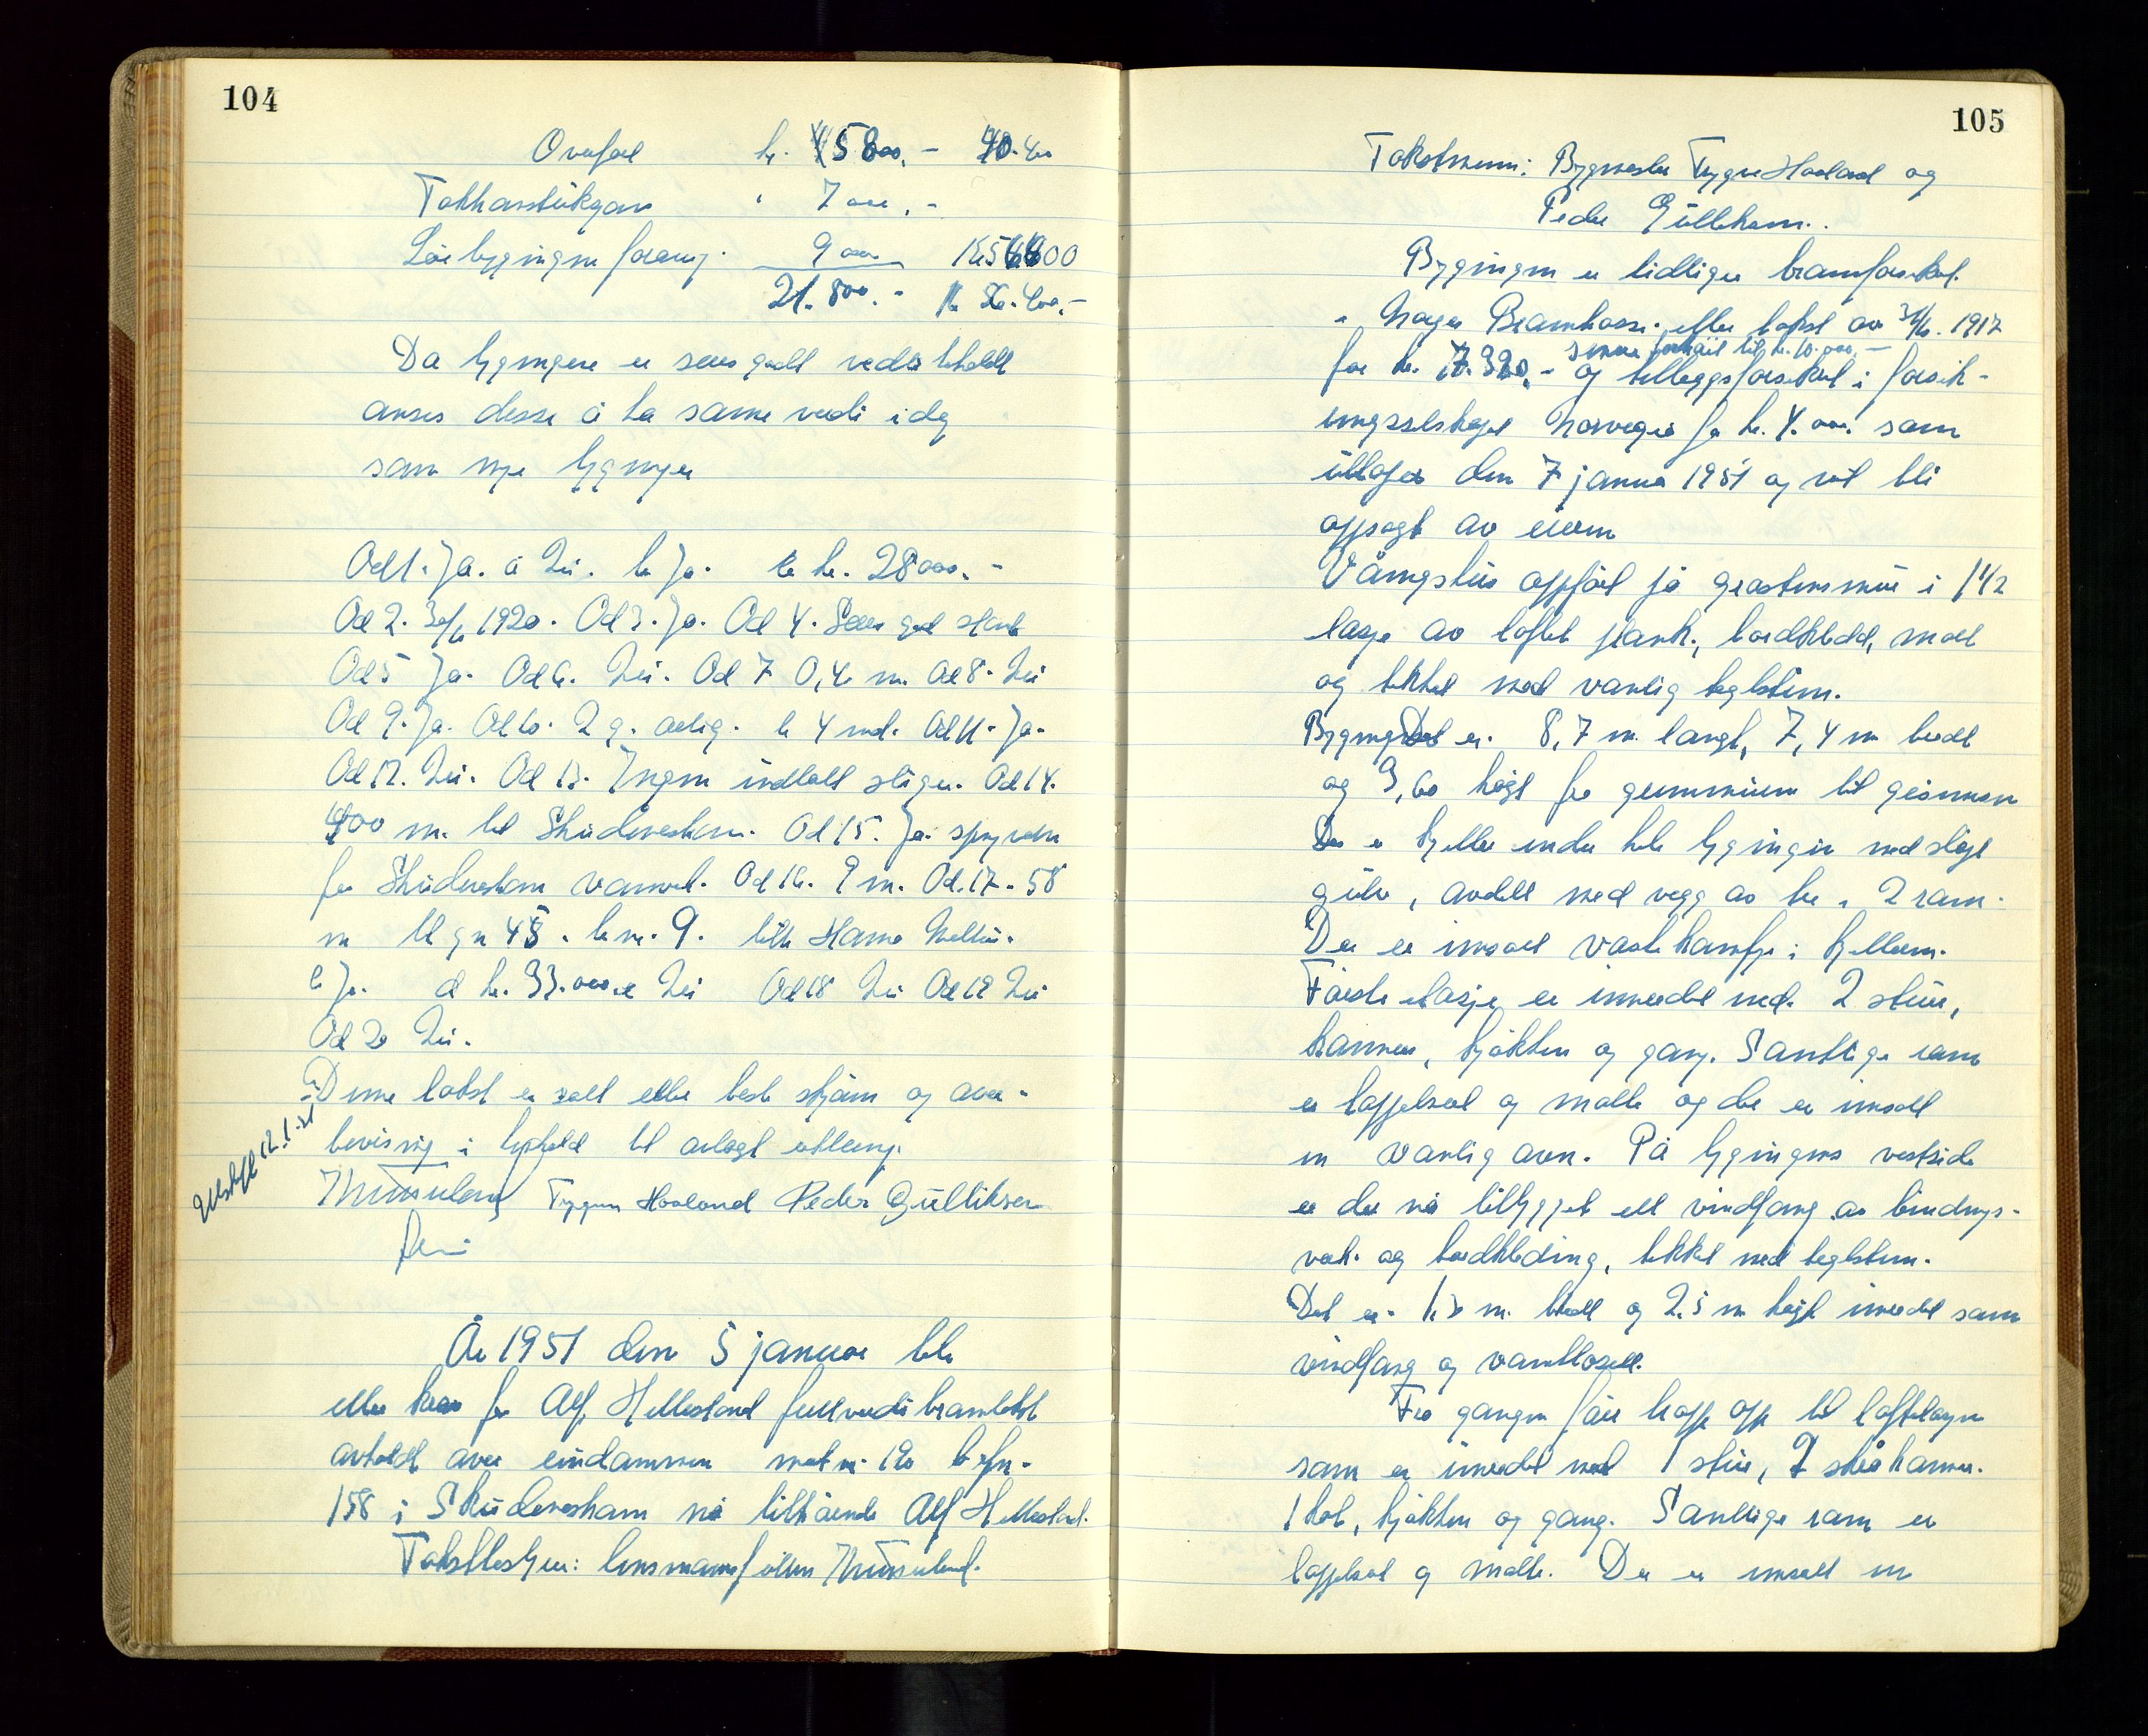 104
Overført kr. 15800.- 40.400
Takkonstruksjon " 7000.-
Løebygningen forøvrig. 9000 16000
21.800.- kr. 56.400.-
Da bygningene er svært godt vedlikeholdt
anses disse å ha samme verdi i dag
som nye bygninger
Ad 1. Ja. a Nei. b Ja. kr. 28000.-
Ad 2. 30/6 1920. Ad 3. Ja. Ad 4. Svært god stand
Ad 5 Ja. Ad 6. Nei. Ad 7 0,40 m. Ad 8. Nei
Ad 9. Ja. Ad 10. 2 g. årlig. b 4 md. Ad 11. Ja.
Ad 12. Nei. Ad 13. Ingen indtatt stige. Ad 14.
400 m. til Skudeneshavn. Ad 15. Ja. sprøyten
fra Skudeneshavn vannverk. Ad 16. 9 m. Ad. 17. 58
m til gn 45. br.nr. 9. tilh Hans
c Ja. d kr. 33.000 e Nei Ad 18 Nei Ad 19 Nei
Ad 20 Nei.
Denne takst er satt etter beste skjønn og over-
bevisning i henhold til avlagt erklæring.
Trygve Hovland Peder Gulliksen
Utskrift 12.1.51
År 1951 den 5 januar ble
etter krav fra Alf Hellesland fullverdi branntakst
avholdt over eiendommen matr nr. 120 br.fnr.
158 i Skudeneshavn nå tilhørende Alf Hellesland.
Takstbestyrer: lensmannsfullm
105
Takstmenn: Bygmester Trygve Hovland og
Peder Gulliksen.
Bygningen er tidligere brannforsikret
i Norges Brannkasse etter takst av 1917
for kr. 7.320.- senere forhøiet til kr. 10.000.- og tilleggsforsikret i forsik-
ringsselskapet Norvegia for kr. 4.000. som
utløper den 7 januar 1951 og vil bli
oppsagt av eieren
Våningshus oppført på gråstensmur i 1 1/2
etasje av laftet plank, bordkledd, malt
og tekket med vanlig teglsten.
Bygningen er. 8,7 m. langt, 7,4 m bredt
og 3,60 høgt fra grunnmuren til gesimsen
Der er kjeller under hele bygningen med støpt
gulv, avdelt med vegg av tre i 2 rom.
Der er innsatt vaskekamfyr i kjelleren.
Første etasje er innredet med 2 stuer,
kammer, kjøkken og gang. Samtlige rom
er tappetsert og malte og der er innsatt
en vanlig ovn. På bygningens vestside
er der nå tilbygget ett vindfang av bindings-
verk og bordkledning, tekket med teglsten.
Det er 1,2 m. bredt og 2,5 m høgt innredet som
vindfang og vannklosett.
Fra gangen fører trapp opp til loftetasjen
som er innredet med 1 stue, 2 små kammer.
1 kott, kjøkken og gang. Samtlige rom er
tappetsert og malte. Der er innsatt en